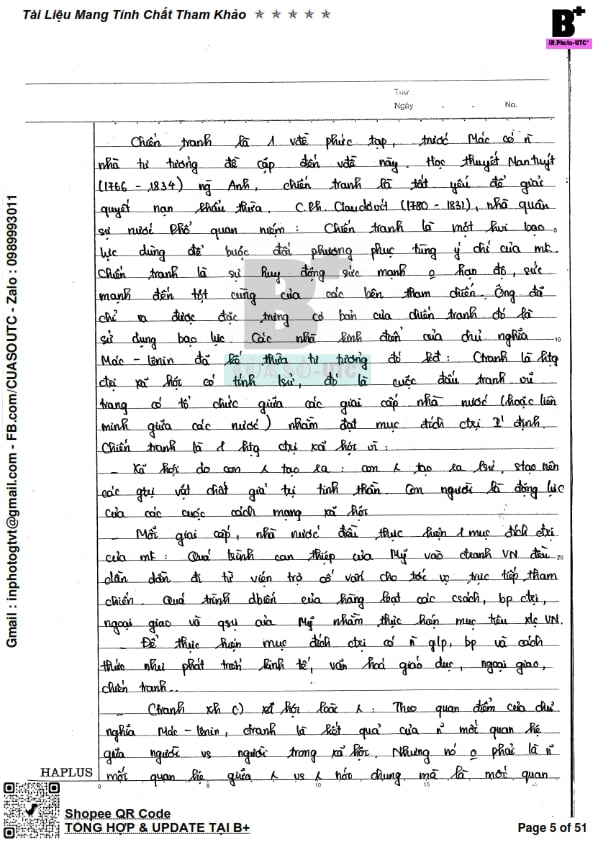 Tài Liệu Mang Tính Chất Tham Khảo ★ ★ ★ ★ ★
B+
IN.Photo-UTC*
Thứ
Ngày . . No.
Chiến tranh là 1 vđề phức tạp, trước Mác có n̄
nhà tư tưởng đề cập đến vđề này. Học thuyết Mantuyt
(1766 - 1834) ng Anh, chiến tranh là tất yếu để giải
quyết nạn khẩu thừa. C.Ph. Claudơvít (1780 - 1831), nhà quân
sự nước Phổ quan niệm: Chiến tranh là một hvi bạo
lực dùng để buộc đối phương phục tùng ý chí của mt.
Chiến tranh là sự huy động sức mạnh o hạn độ, sức
mạnh đến tột cùng của các bên tham chiến. Ông đã
chỉ ra được đặc trưng cơ bản của chiến tranh đó là
sử dụng bạo lực. Các nhà kinh điển của chủ nghĩa
Mác-lênin đã kế thừa tư tưởng đó kđ: Ctranh là htg
ctrị xã hội có tính lsử, đó là cuộc đấu tranh vũ
trang có tổ chức giữa các giai cấp nhà nước (hoặc liên
minh giữa các nước) nhằm đạt mục đích ctrị I' định.
Chiến tranh là 1 htg ctrị xã hội vì:
- Xã hội do con λ tạo ra: con λ tạo ra lsử, stạo nên
các gtrị vật chất giá trị tinh thần. Con người là động lực
của các cuộc cách mạng xã hội
- Mỗi giai cấp, nhà nước đều thực hiện 1 mục đích ctrị
của mt: Quá trình can thiệp của Mỹ vào ctranh VN đều
dần dần đi từ viện trợ cố vấn cho tới vc trực tiếp tham
chiến. Quá trình dbiến của hàng loạt các csách, bp ctrị,
ngoại giao và qsự của Mỹ nhằm thực hiện mục tiêu xlc VN.
- Để thực hiện mục đích ctrị có n̄ glp, bp và cách
thức như phát triển kinh tế, văn hoá giáo dục, ngoại giao,
chiến tranh...
- Ctranh xh c) xã hội loài λ: Theo quan điểm của chủ
nghĩa Mác-lênin, ctranh là kết quả của n̄ mối quan hệ
giữa người vs người trong xã hội. Nhưng nó o phải là n̄
mối quan hệ giữa λ vs λ nói chung mà là mối quan
10
20
HAPLUS 0 5 10 15
CỬA SỔ-UTC
Gmail : inphotogtvt@gmail.com - FB.com/CUASOUTC - Zalo : 0989993011
Shopee QR Code
TỔNG HỢP & UPDATE TẠI B+
Page 5 of 51